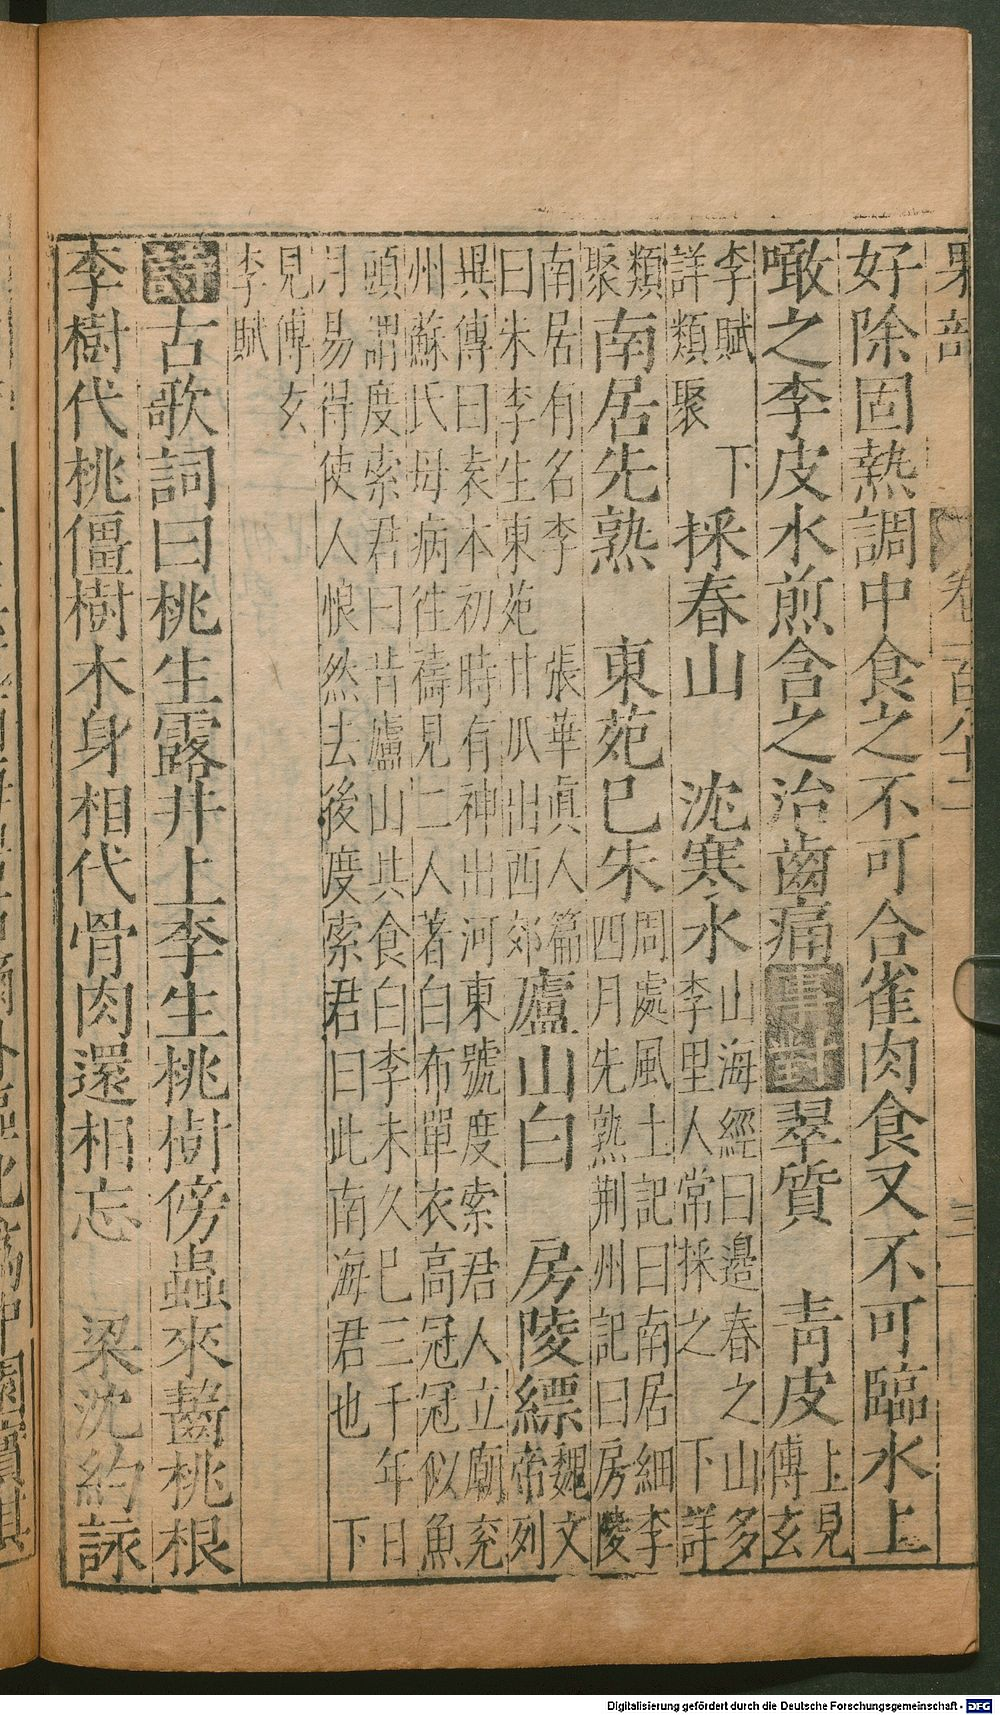 果部 卷一百八十二 三
好除固熱調中食之不可合雀肉食又不可臨水上
噉之李皮水煎含之治齒痛 事對 翠質 青皮 上見傅玄
李賦 下詳類聚 採春山 沈寒水 山海經曰邊春之山多李里人常採之 下詳
類聚 南居先熟 東苑已朱 周處風土記曰南居細李四月先熟荆州記曰房陵
南居有名李 張華眞人篇曰朱李生東苑甘瓜出西郊 廬山白 房陵縹 魏文帝列
異傳曰袁本初時有神出河東號度索君人立廟兖
州蘇氏母病往禱見二人著白布單衣高冠冠似魚
頭謂度索君曰昔廬山共食白李未久已三千年日
月易得使人悵然去後度索君曰此南海君也 下
見傅玄
李賦
詩 古歌詞曰桃生露井上李生桃樹傍蟲來齧桃根
李樹代桃僵樹木身相代骨肉還相忘 梁沈約詠
Digitalisierung gefördert durch die Deutsche Forschungsgemeinschaft - DFG